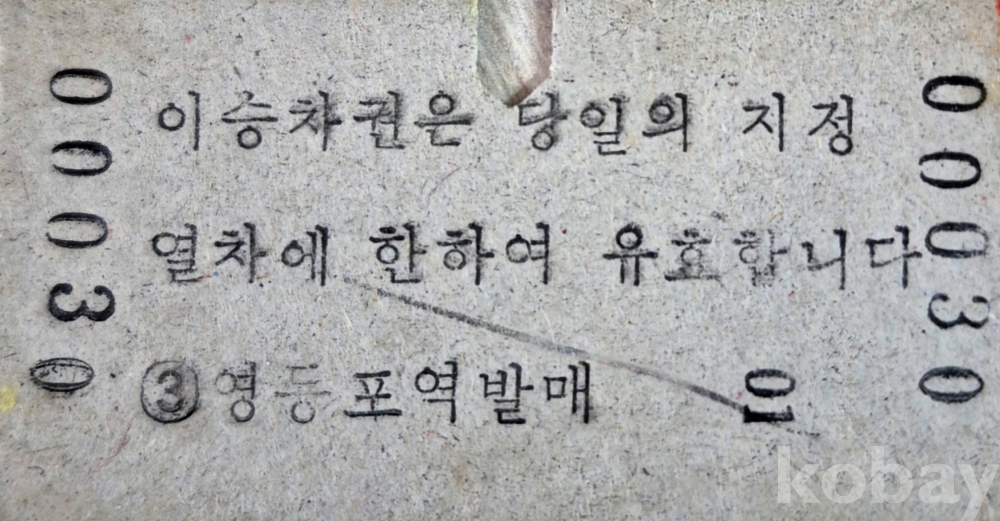 00030
이승차권은 당일의 지정
열차에 한하여 유효합니다
③영등포역발매
01
00030
kobay